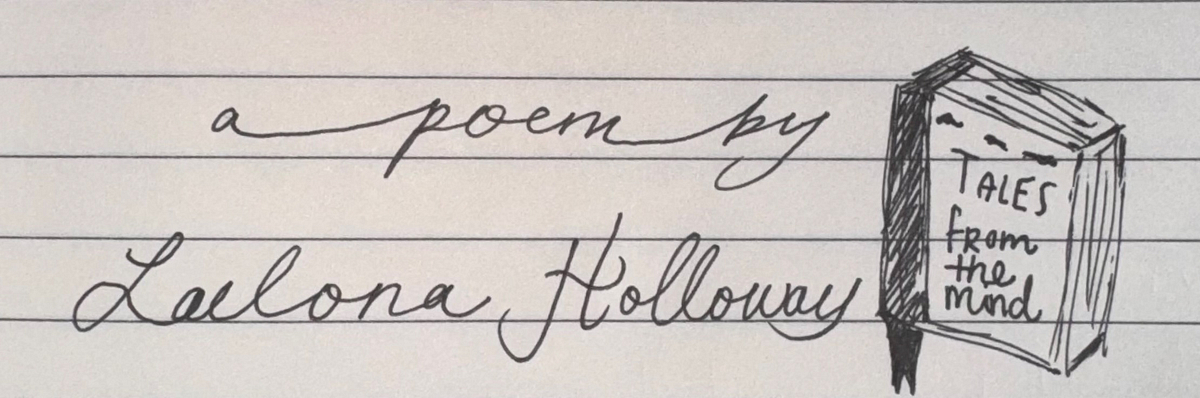 a poem by
Laelona Holloway
TALES
from
the
mind